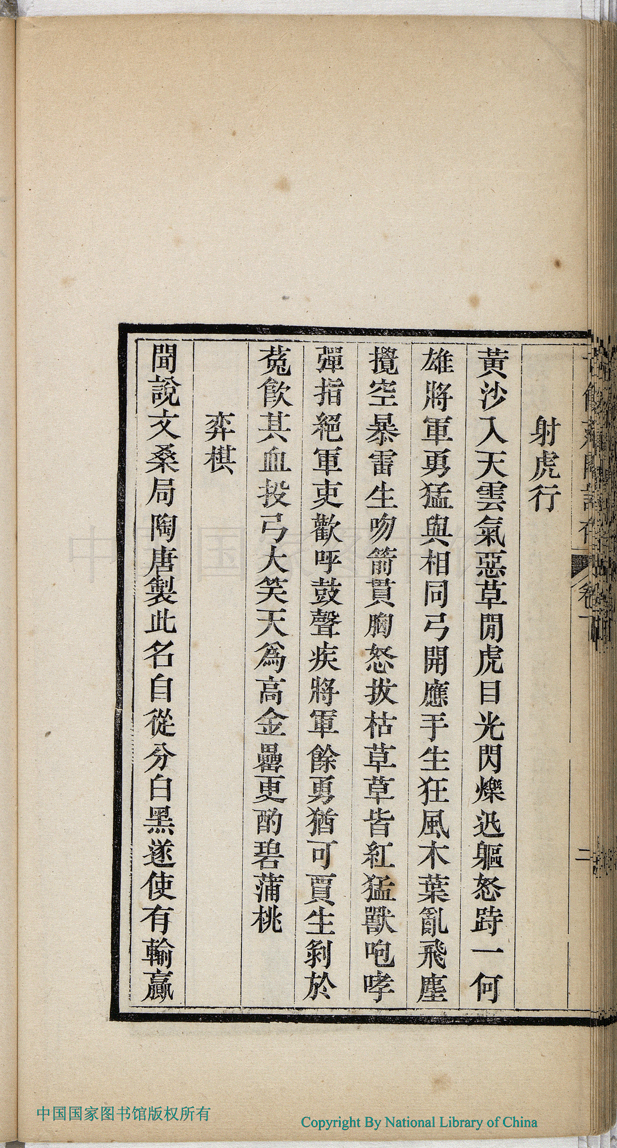 射虎行
黃沙入天雲氣惡草閒虎目光閃爍迅軀怒跱一何
雄將軍勇猛與相同弓開應手生狂風木葉亂飛塵
攪空暴雷生吻箭貫胸怒拔枯草草皆紅猛獸咆哮
彈指絕軍吏歡呼鼓聲疾將軍餘勇猶可賈生剝於
菟飲其血投弓大笑天為高金罍更酌碧蒲桃
弈棋
聞說文桑局陶唐製此名自從分白黑遂使有輸贏
二
中国国家图书馆
中国国家图书馆版权所有
Copyright By National Library of China